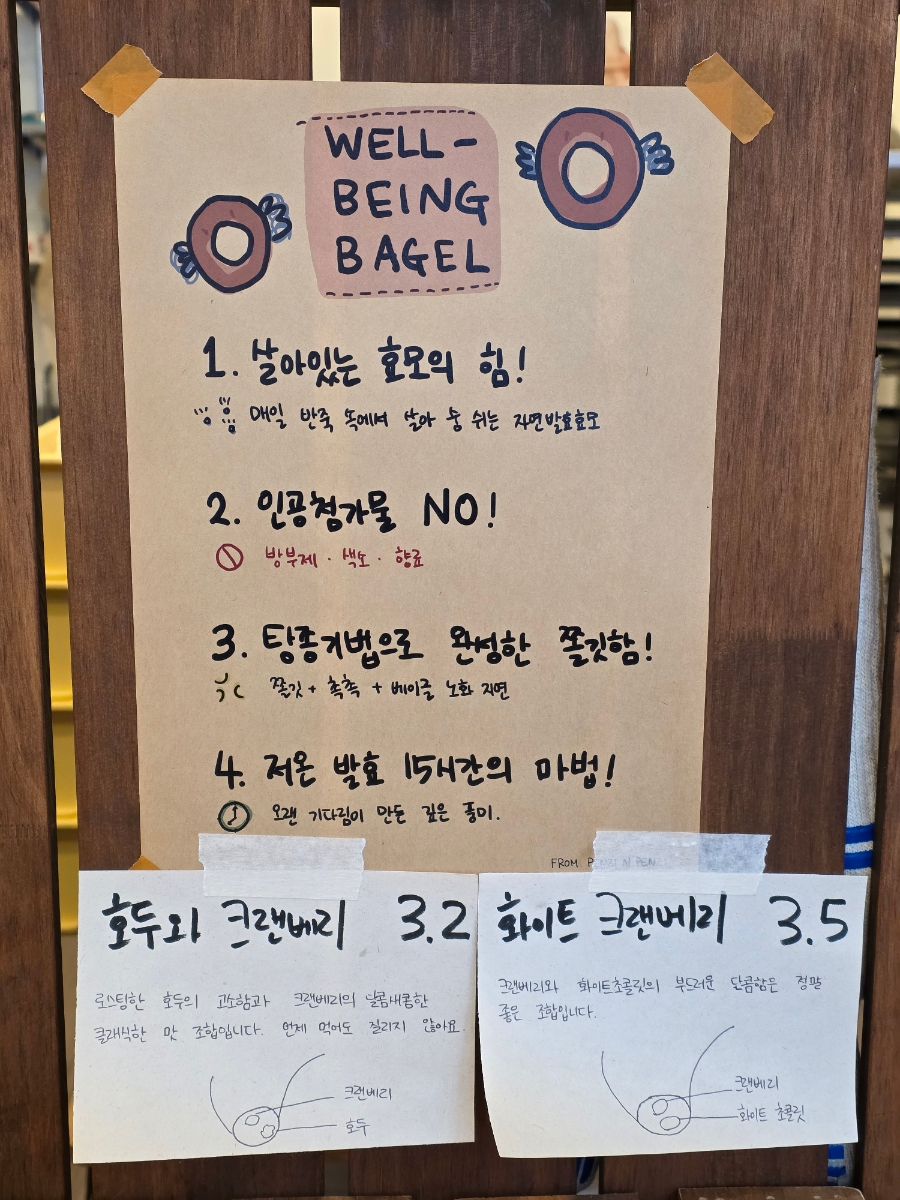 WELL-
BEING
BAGEL
1. 살아있는 효모의 힘!
매일 반죽 속에서 살아 숨 쉬는 자연발효효모
2. 인공첨가물 NO!
방부제 · 색소 · 향료
3. 탕종기법으로 완성한 쫄깃함!
쫄깃 + 촉촉 + 베이글 노화 지연
4. 저온 발효 15시간의 마법!
오랜 기다림이 만든 깊은 풍미.
FROM PENZI N PEN
호두와 크랜베리 3.2
로스팅한 호두의 고소함과 크랜베리의 달콤새콤한
클래식한 맛 조합입니다. 언제 먹어도 질리지 않아요.
크랜베리
호두
화이트 크랜베리 3.5
크랜베리와 화이트초콜릿의 부드러운 단콤함은 정말
좋은 조합입니다.
크랜베리
화이트 초콜릿